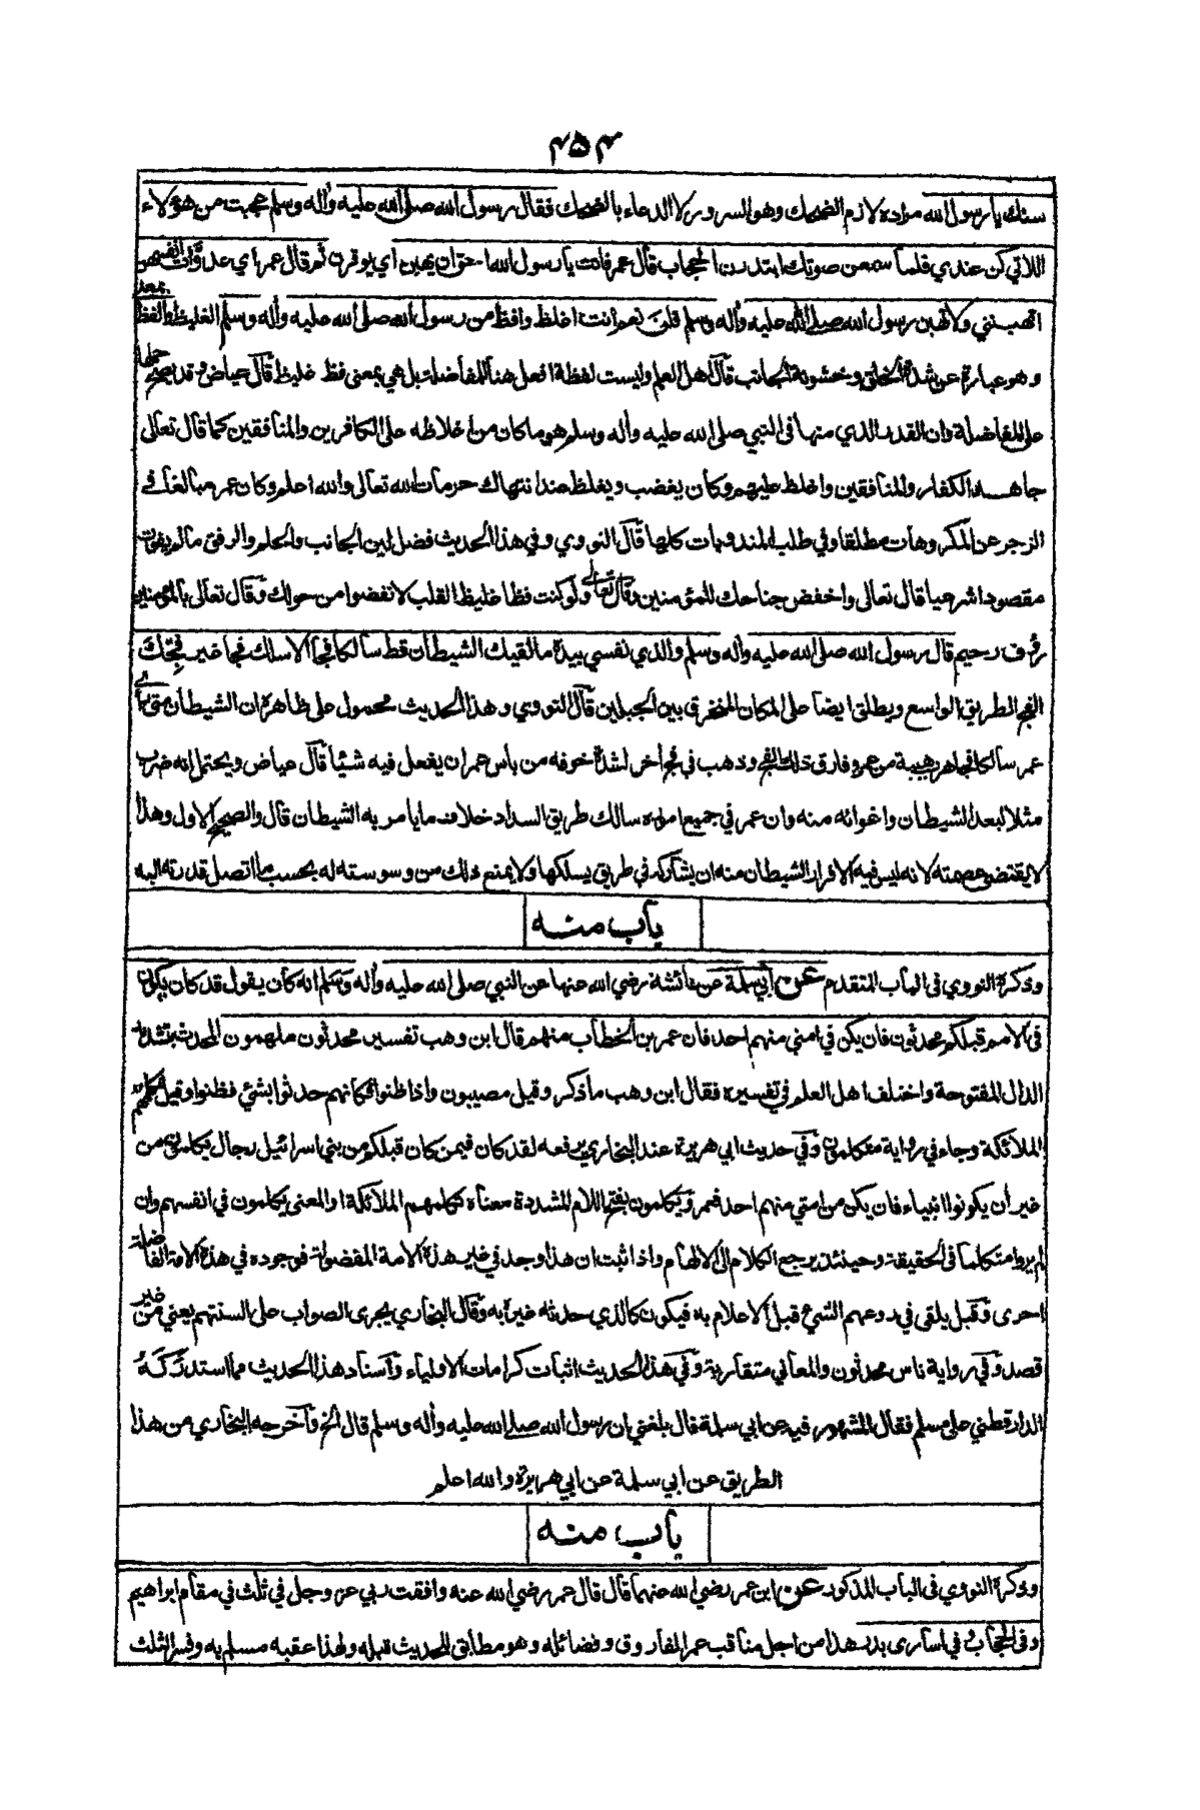 ٤٥٤
سنك يا رسول الله مراده لازم الضحك وهو السرور لا الدعاء بالضحك فقال رسول الله صلى الله عليه وأله وسلم عجبت من هؤلاء
اللاتي كن عندي فلما سمعن صوتك ابتدرن الحجاب قال عمر فانت يا رسول الله احق ان يهبن اي يوقرن ثم قال عمر أي عدوات انفسهن
اتهبنني ولا تهبن رسول الله صلى الله عليه وأله وسلم قلن نعم انت اغلظ وافظ من رسول الله صلى الله عليه وأله وسلم الغليظ والفظ بمعنى
وهو عبارة عن شدة الخلق وخشونة الجانب قال اهل العلم وليست لفظة افعل هنا للمفاضلة بل هي بمعنى فظ غليظ قال عياض وقد يصح حملها
على المفاضلة وان القدر الذي منها في النبي صلى الله عليه وأله وسلم هو ما كان من اغلاظه على الكافرين والمنافقين كما قال تعالى
جاهد الكفار والمنافقين واغلظ عليهم وكان يغضب ويغلظ عند انتهاك حرمات الله تعالى والله اعلم وكان عمر مبالغا في
الزجر عن المكروهات مطلقا وفي طلب المندوبات كلها قال النووي وفي هذا الحديث فضل لين الجانب والحلم والرفق ما لم يفوت
مقصودا شرعيا قال تعالى واخفض جناحك للمؤمنين وقال تعالى ولو كنت فظا غليظ القلب لانفضوا من حولك وقال تعالى بالمؤمنين
رؤف رحيم قال رسول الله صلى الله عليه وأله وسلم والذي نفسي بيده ما لقيك الشيطان قط سالكا فجا الا سلك فجا غير فجك
الفج الطريق الواسع ويطلق ايضا على المكان المنخرق بين الجبلين قال النووي وهذا الحديث محمول على ظاهره ان الشيطان متى رأى
عمر سالكا فجا هرب هيبة من عمر وفارق ذلك الفج وذهب في فج أخر لشدة خوفه من بأس عمر ان يفعل فيه شيئا قال عياض ويحتمل انه ضرب
مثلا لبعد الشيطان واغوائه منه وان عمر في جميع اموره سالك طريق السداد خلاف ما يأمر به الشيطان قال والصحيح الاول وهذا
لا يقتضي عصمته لانه ليس فيه الا فرار الشيطان منه ان يشاركه في طريق يسلكها ولا يمنع ذلك من وسوسته له بحسب ما اتصل قدرته اليه
باب منه
وذكره النووي في الباب المتقدم عن أبي سلمة عن عائشة رضي الله عنها عن النبي صلى الله عليه وأله وسلم انه كان يقول قد كان يكون
في الامم قبلكم محدثون فان يكن في امتي منهم احد فان عمر بن الخطاب منهم قال ابن وهب تفسير محدثون ملهمون المحدث بتشديد
الدال المفتوحة واختلف اهل العلم في تفسيره فقال ابن وهب ما ذكر وقيل مصيبون واذا ظنوا فكانهم حدثوا بشئ فظنوا وقيل تكلمهم
الملائكة وجاء في رواية متكلمون وفي حديث ابي هريرة عند البخاري يرفعه لقد كان فيمن كان قبلكم من بني اسرائيل رجال يكلمون من
غير أن يكونوا انبياء فان يكن من امتي منهم احد فعمر ويكلمون بفتح اللام المشددة معناه تكلمهم الملائكة او المعنى يكلمون في انفسهم وان
لم يروا متكلما في الحقيقة وحينئذ يرجع الكلام الى الالهام واذا ثبت ان هذا وجد في غير هذه الامة المفضولة فوجوده في هذه الامة الفاضلة
احرى وقيل يلقى في روعهم الشئ قبل الاعلام به فيكون كالذي حدثه غيره به وقال البخاري يجرى الصواب على السنتهم يعني من غير
قصد وفي رواية ناس محدثون والمعاني متقاربة وفي هذا الحديث اثبات كرامات الاولياء وأسناد هذا الحديث مما استدركه
الدارقطني على مسلم فقال المشهور فيه عن ابي سلمة قال بلغني ان رسول الله صلى الله عليه وأله وسلم قال الخ وأخرجه البخاري من هذا
الطريق عن ابي سلمة عن ابي هريرة والله اعلم
باب منه
وذكره النووي في الباب المذكور عن ابن عمر رضي الله عنهما قال قال عمر رضي الله عنه وافقت ربي عز وجل في ثلث في مقام ابراهيم
وفي الحجاب وفي اسارى بدر هذا من اجل مناقب عمر الفاروق وفضائله وهو مطابق للحديث قبله ولهذا عقبه مسلم به وفسر الثلث